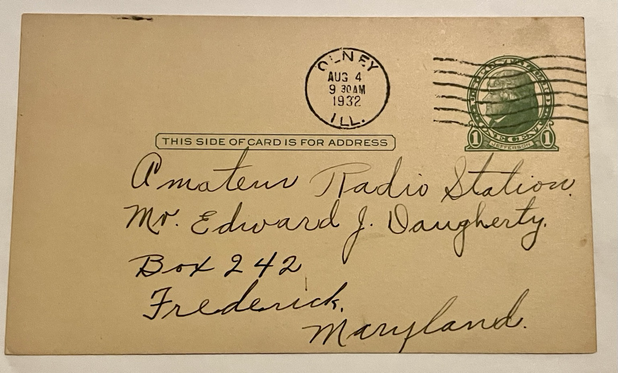 OLNEY
AUG 4
9 30AM
1932
ILL.
1 JEFFERSON 1
THIS SIDE OF CARD IS FOR ADDRESS
Amateur Radio Station.
Mr. Edward J. Daugherty.
Box 242
Frederick,
Maryland.